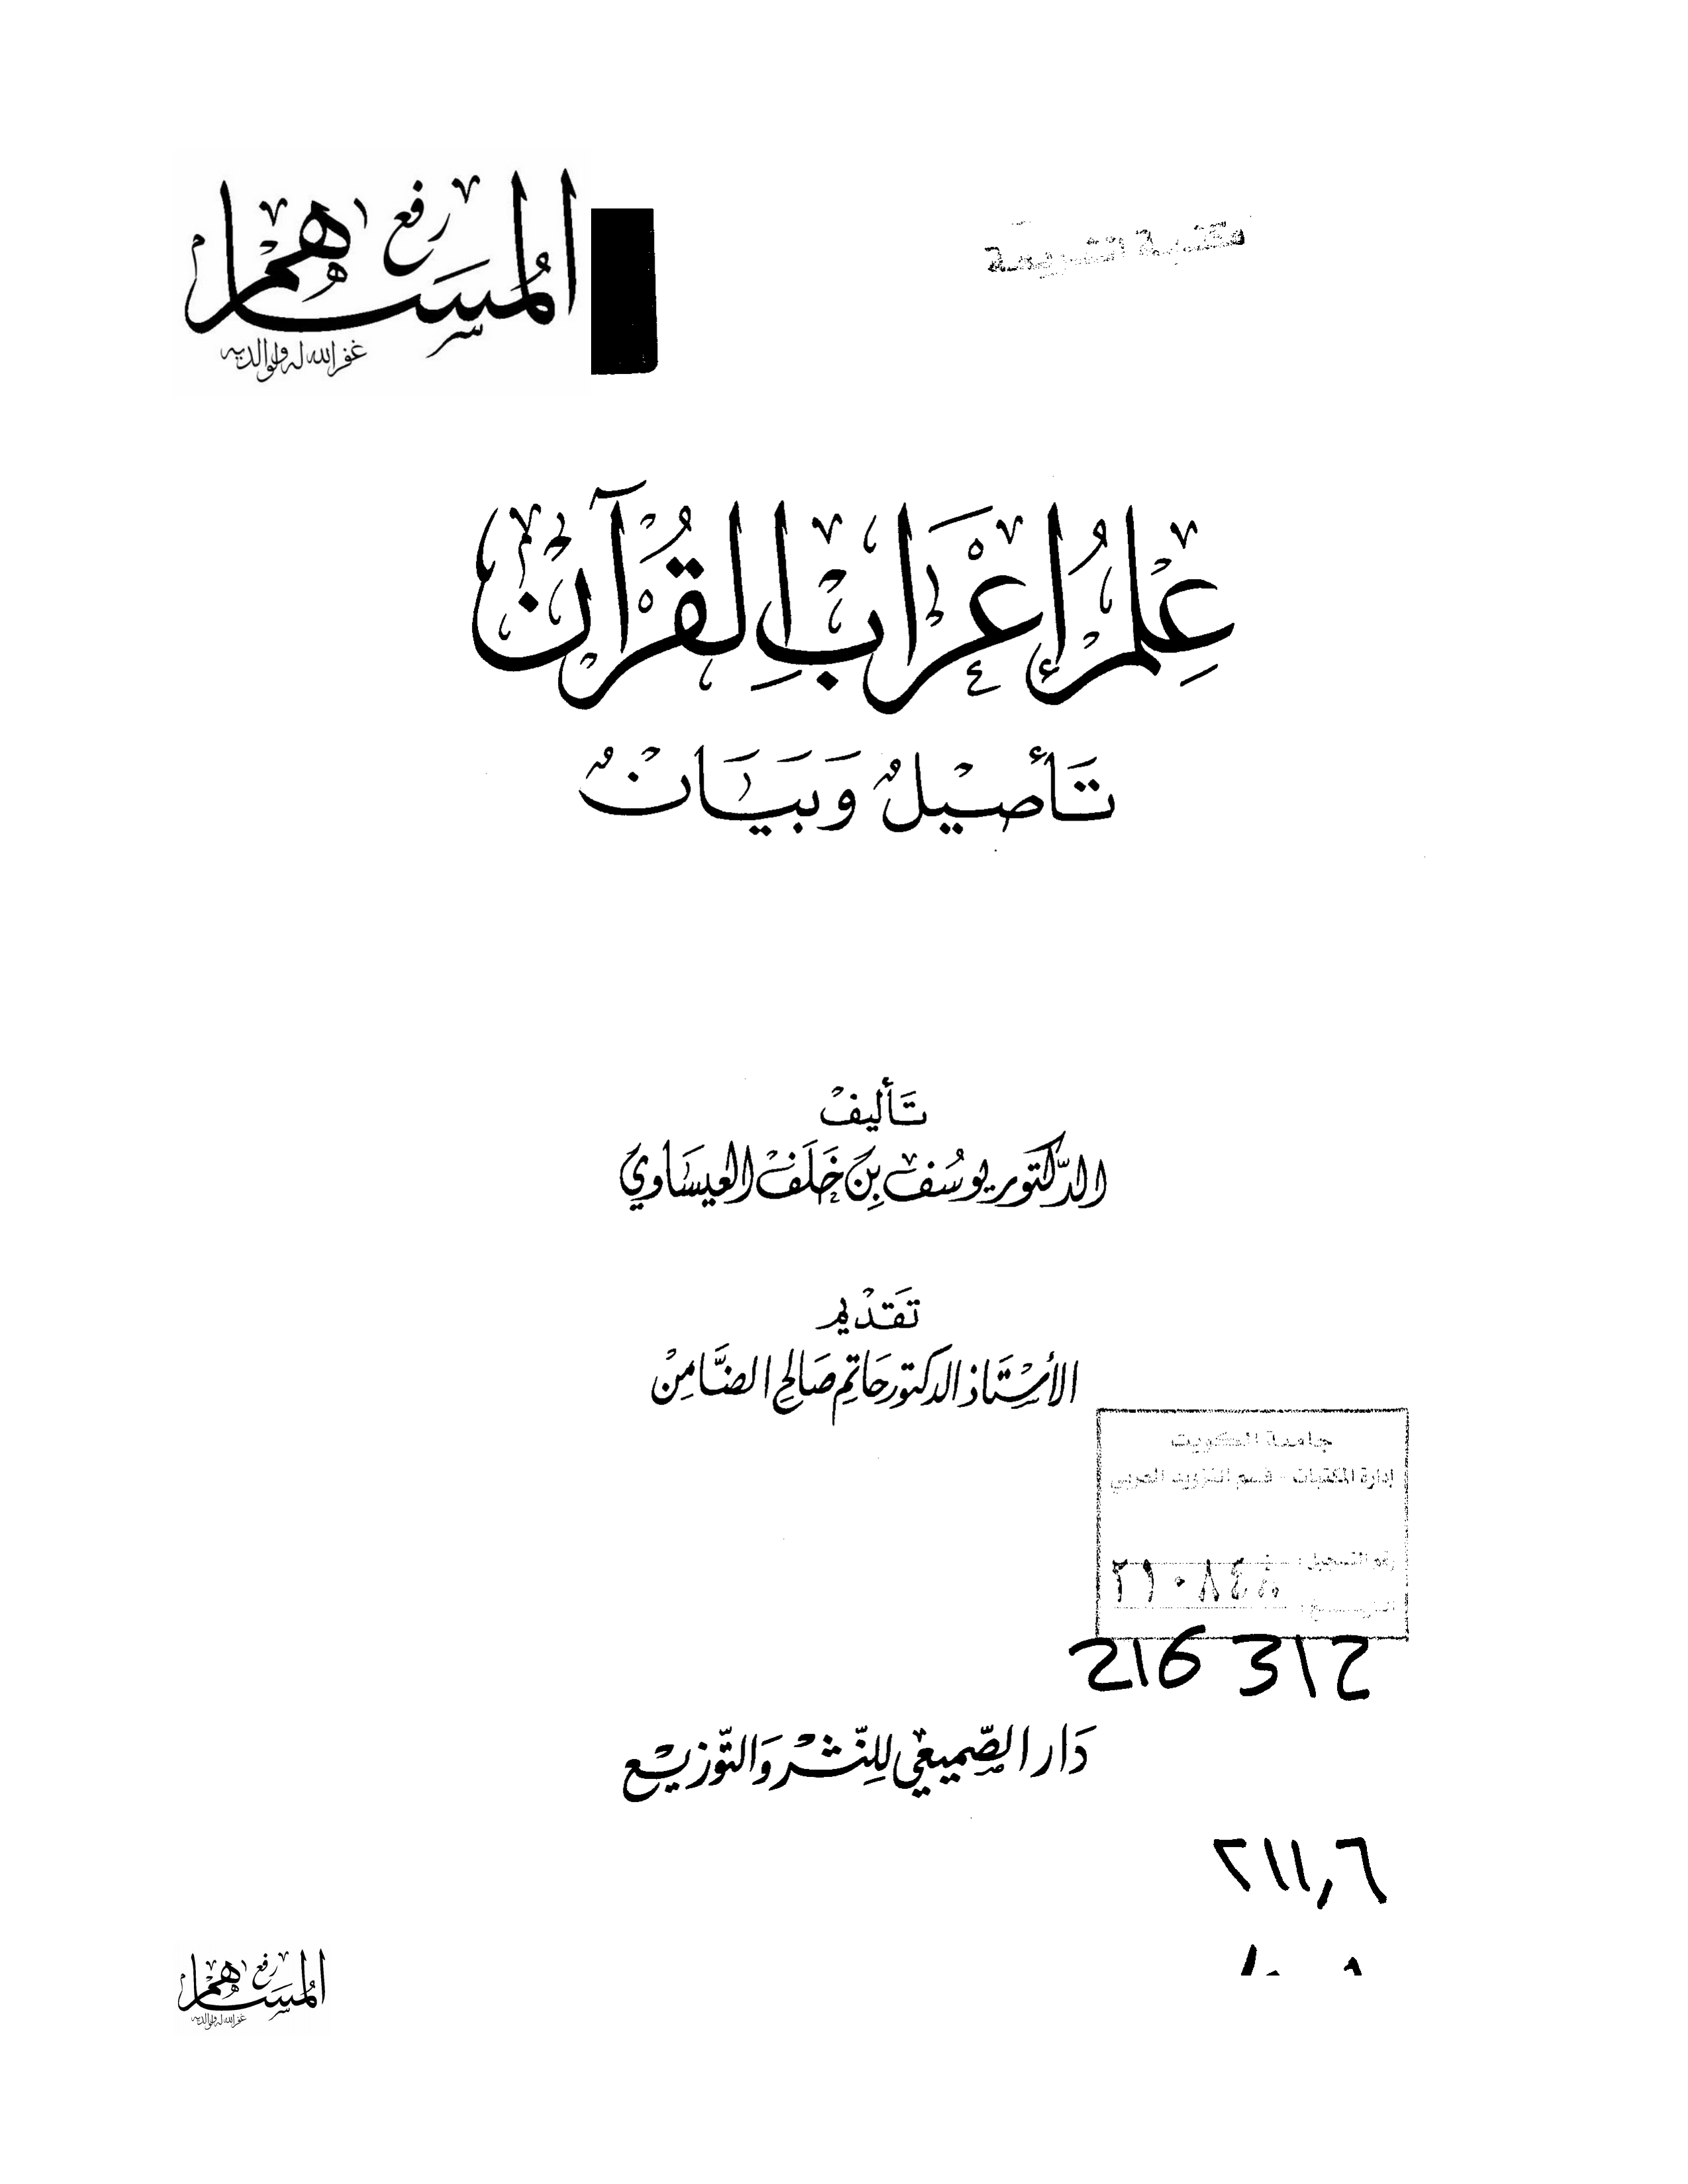 مكتبة الشريعة
رفع
المساهم
غفر الله له ولوالديه
عِلمُ إعْرَابِ القُرآنْ
تَأصيْلٌ وَبَيَانٌ
تَأليفْ
الدّكتور يوسُف بِن خَلَف العيسَاوي
تَقَدْيم
الأسْتَاذ الدكتور حَاتِم صَالح الضَّامِنْ
جامعة الكويت
إدارة المكتبات - قسم التزويد العربي
رقم التسجيل :
التاريـــخ :
216 312
دَار الصّميعي للِنّشْر وَالتّوزيْع
٢١١,٦
رفع
المساهم
غفر الله له ولوالديه